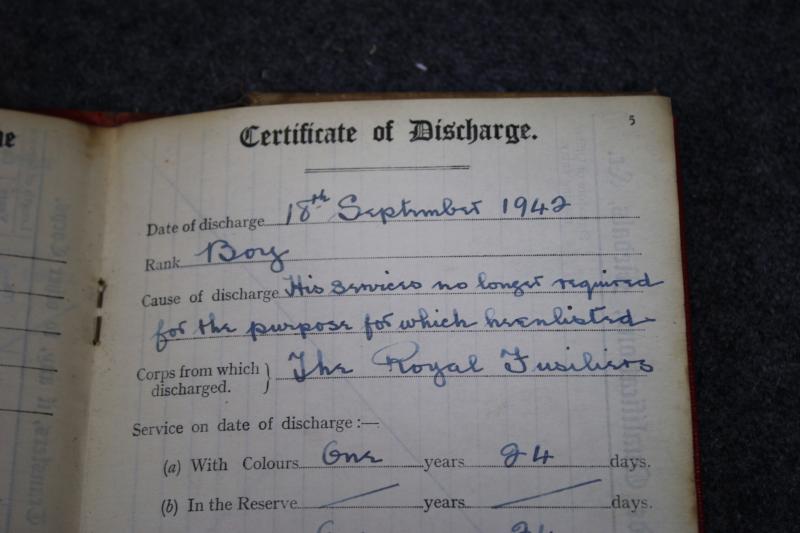 Certificate of Discharge.
5
Date of discharge 18th September 1942
Rank Boy
Cause of discharge His services no longer required
for the purpose for which he enlisted
Corps from which discharged. } The Royal Fusiliers
Service on date of discharge :—
(a) With Colours One years 24 days.
(b) In the Reserve years days.